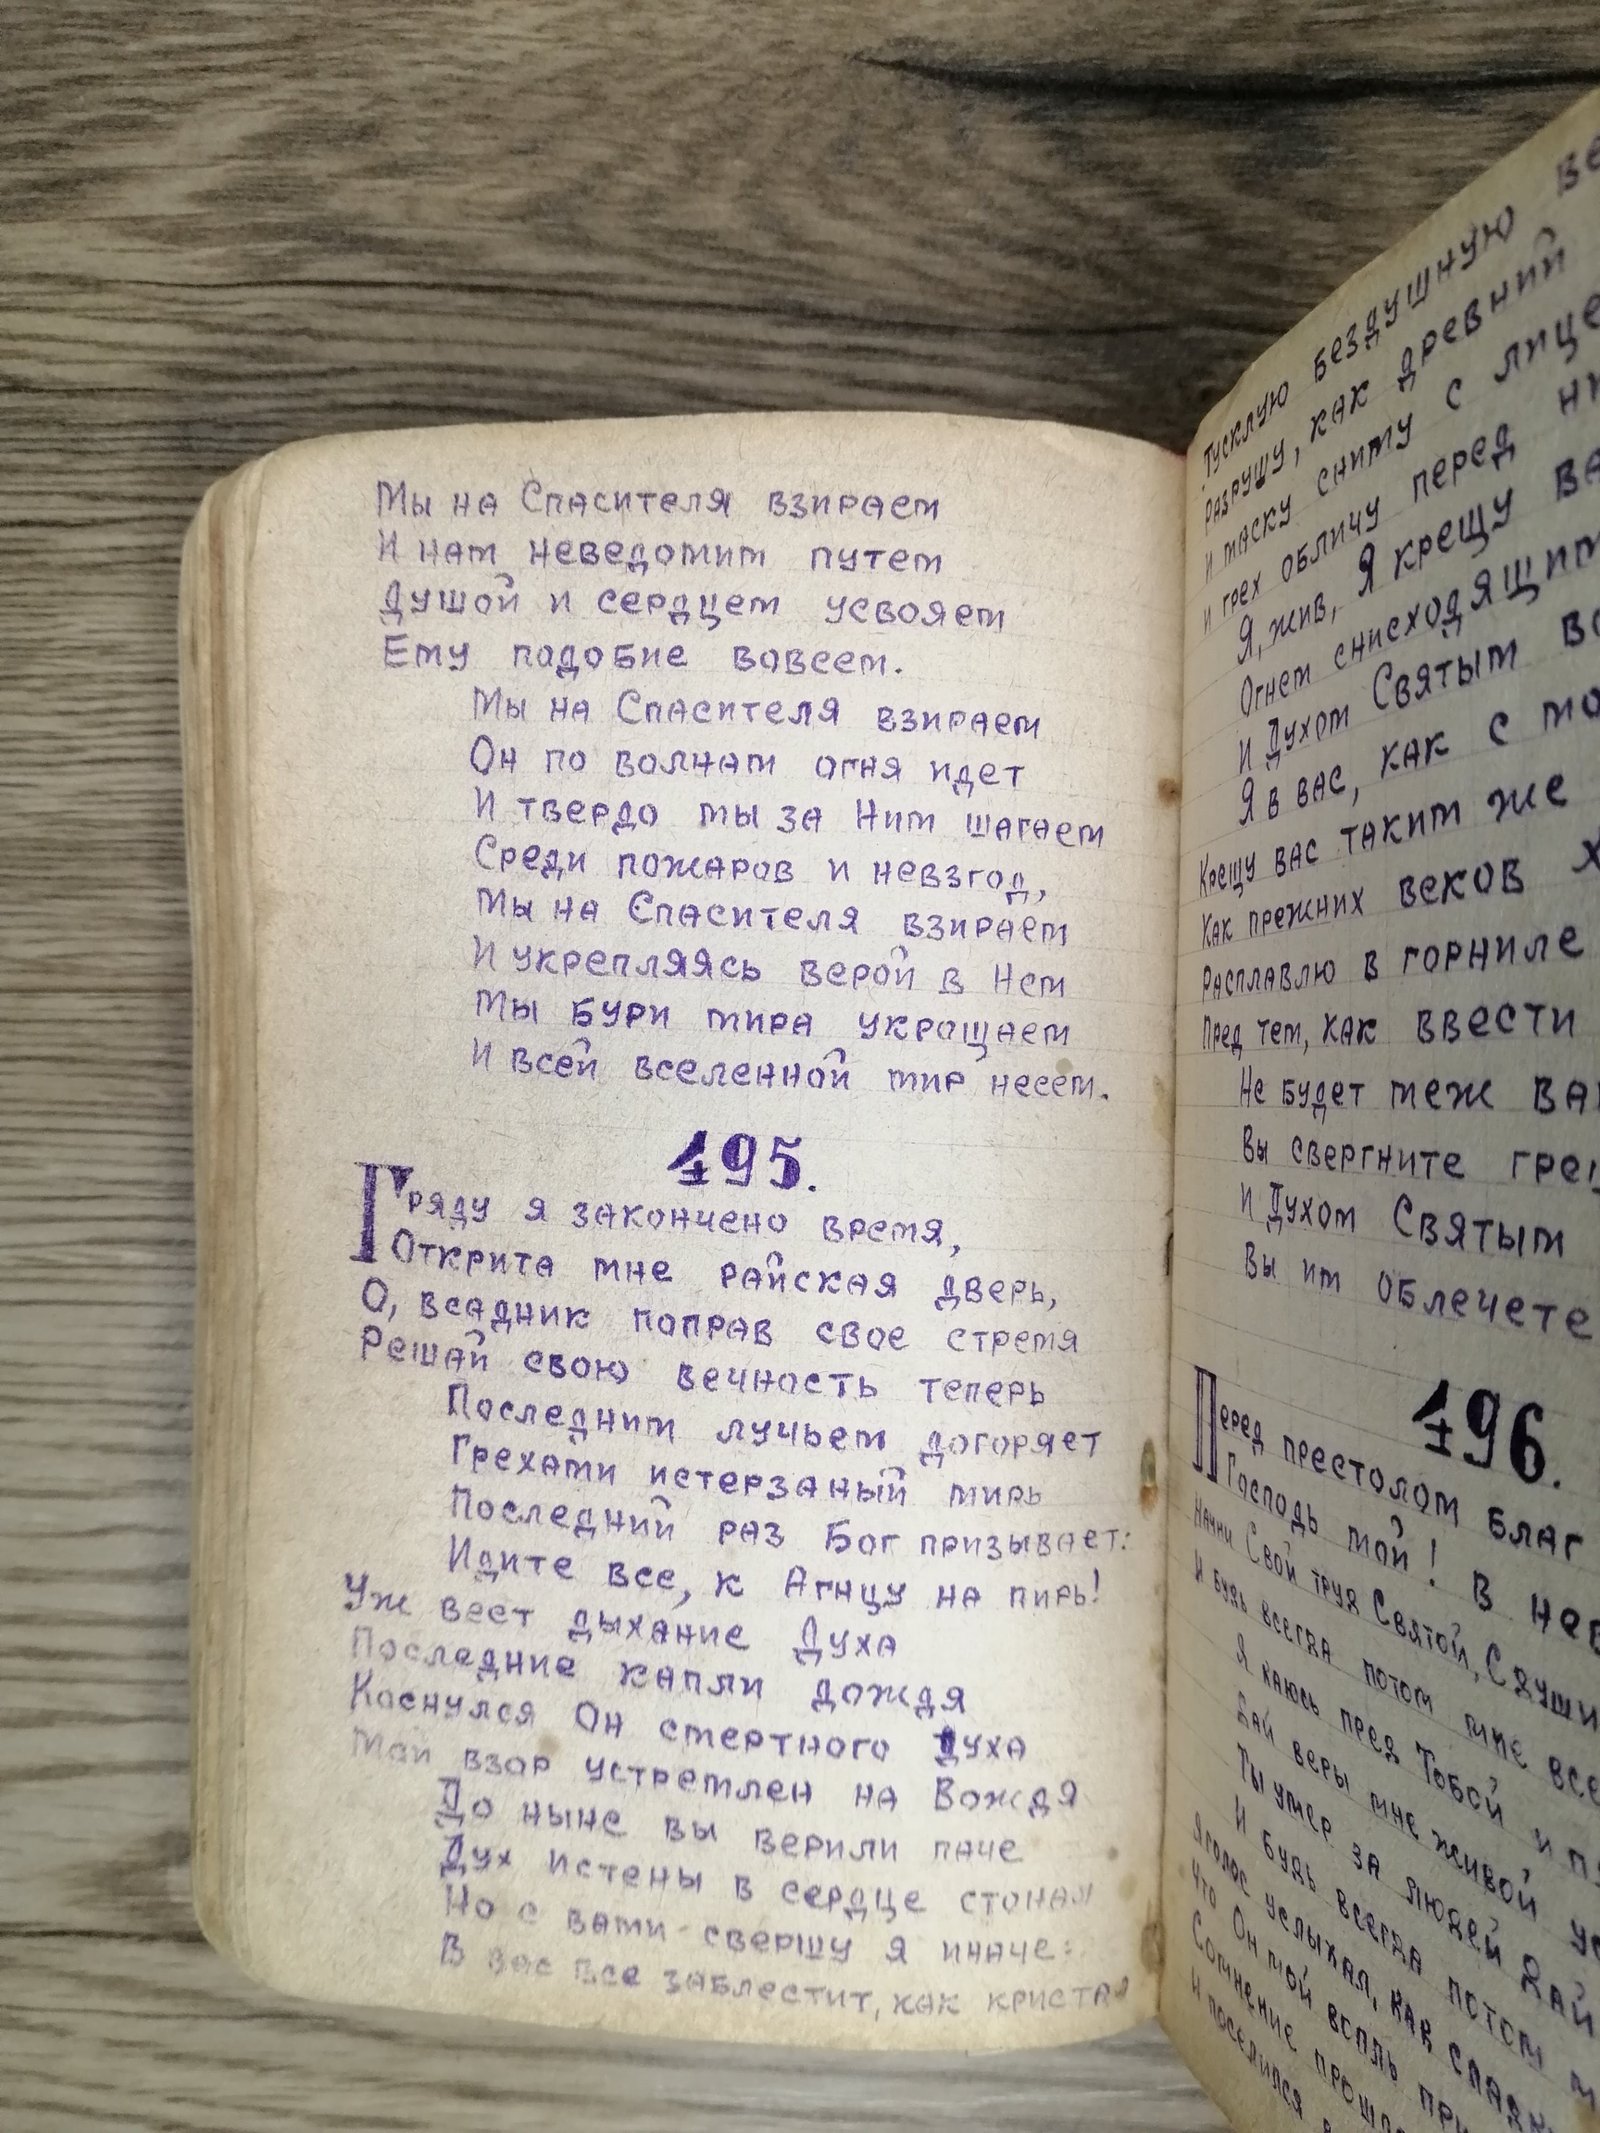 Мы на Спасителя взираем
И нам неведомим путем
Душой и сердцем усвояем
Ему подобие вовсем.
Мы на Спасителя взираем
Он по волнам огня идет
И твердо мы за Ним шагаем
Среди пожаров и невзгод,
Мы на Спасителя взираем
И укрепляясь верой в Нем
Мы бури мира укращаем
И всей вселенной мир несем.
195.
Гряду я закончено время,
Открита мне райская дверь,
О, всадник поправ свое стремя
Решай свою вечность теперь
Последним лучьем догоряет
Грехами истерзаный мирь
Последний раз Бог призывает:
Идите все, к Агнцу на пирь!
Уж веет дыхание Духа
Последние капли дождя
Коснулся Он смертного Духа
Мой взор устремлен на Вождя
До ныне вы верили паче
Дух истены в сердце стонал
Но с вами свершу я иначе:
В вас все заблестит, как кристал
Тусклую бездушную
Разрушу, как древний
И маску сниму с
И грех обличу перед
Я, жив, Я крещу
Огнем снисходящим
И Духом Святым
Я в вас, как с
Крещу вас таким же
Как прежних веков
Расплавлю в горниле
Пред тем, как ввести
Не будет меж
Вы свергните
И Духом Святым
Вы им облечете
196.
Перед престолом
Господь мой! В
Начни Свой труд Святой,
И будь всегда потом мне
Я каюсь пред Тобой и
Дай веры мне живой
Ты умер за людей
И будь всегда потом
Я голос услыхал, как
Что Он мой вопль
Сомнение
И поселился